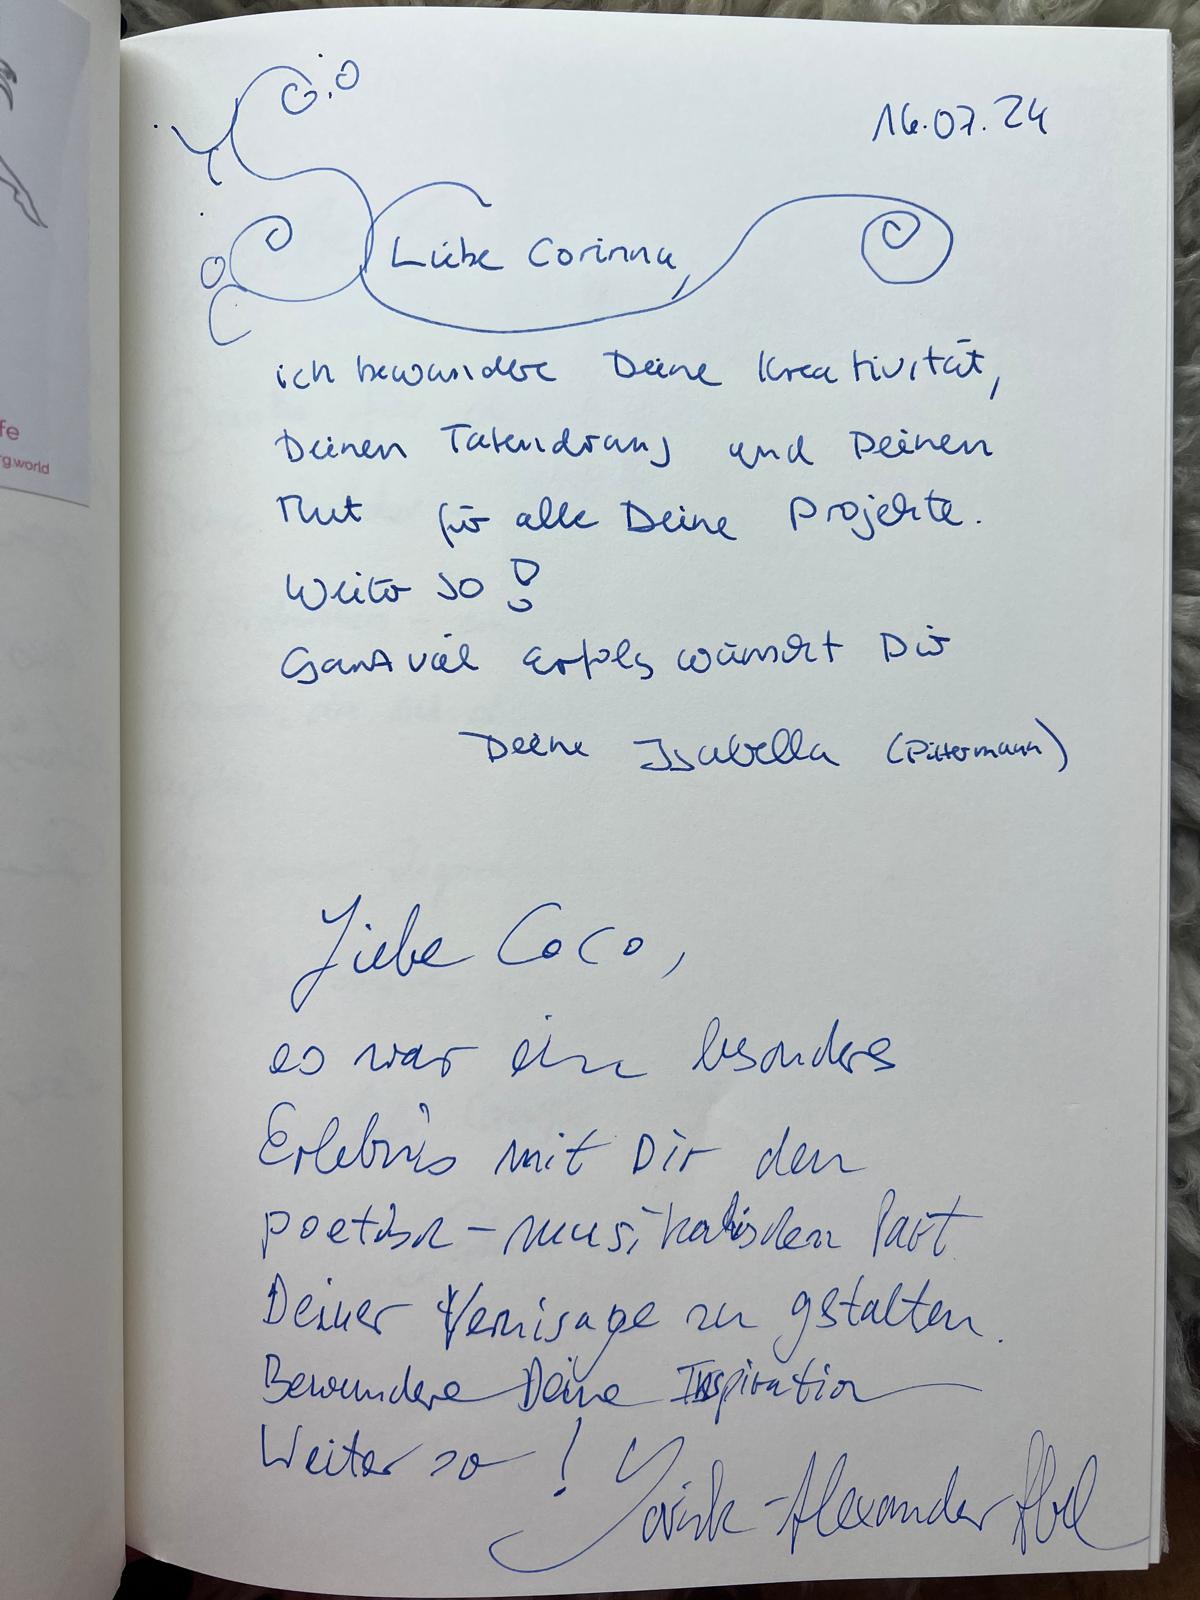 16.07.24
Liebe Corinna,
ich bewundere Deine Kreativität,
Deinen Tatendrang und Deinen
Mut für alle Deine Projekte.
Weiter so!
Ganz viel Erfolg wünscht Dir
Deine Isabella (Pittermann)
fe
rg.world
Liebe Coco,
es war ein besonderes
Erlebnis mit Dir den
poetisch-musikalischen Part
Deiner Vernisage zu gestalten.
Bewundere Deine Inspiration
Weiter so!
Yorick-Alexander Abel